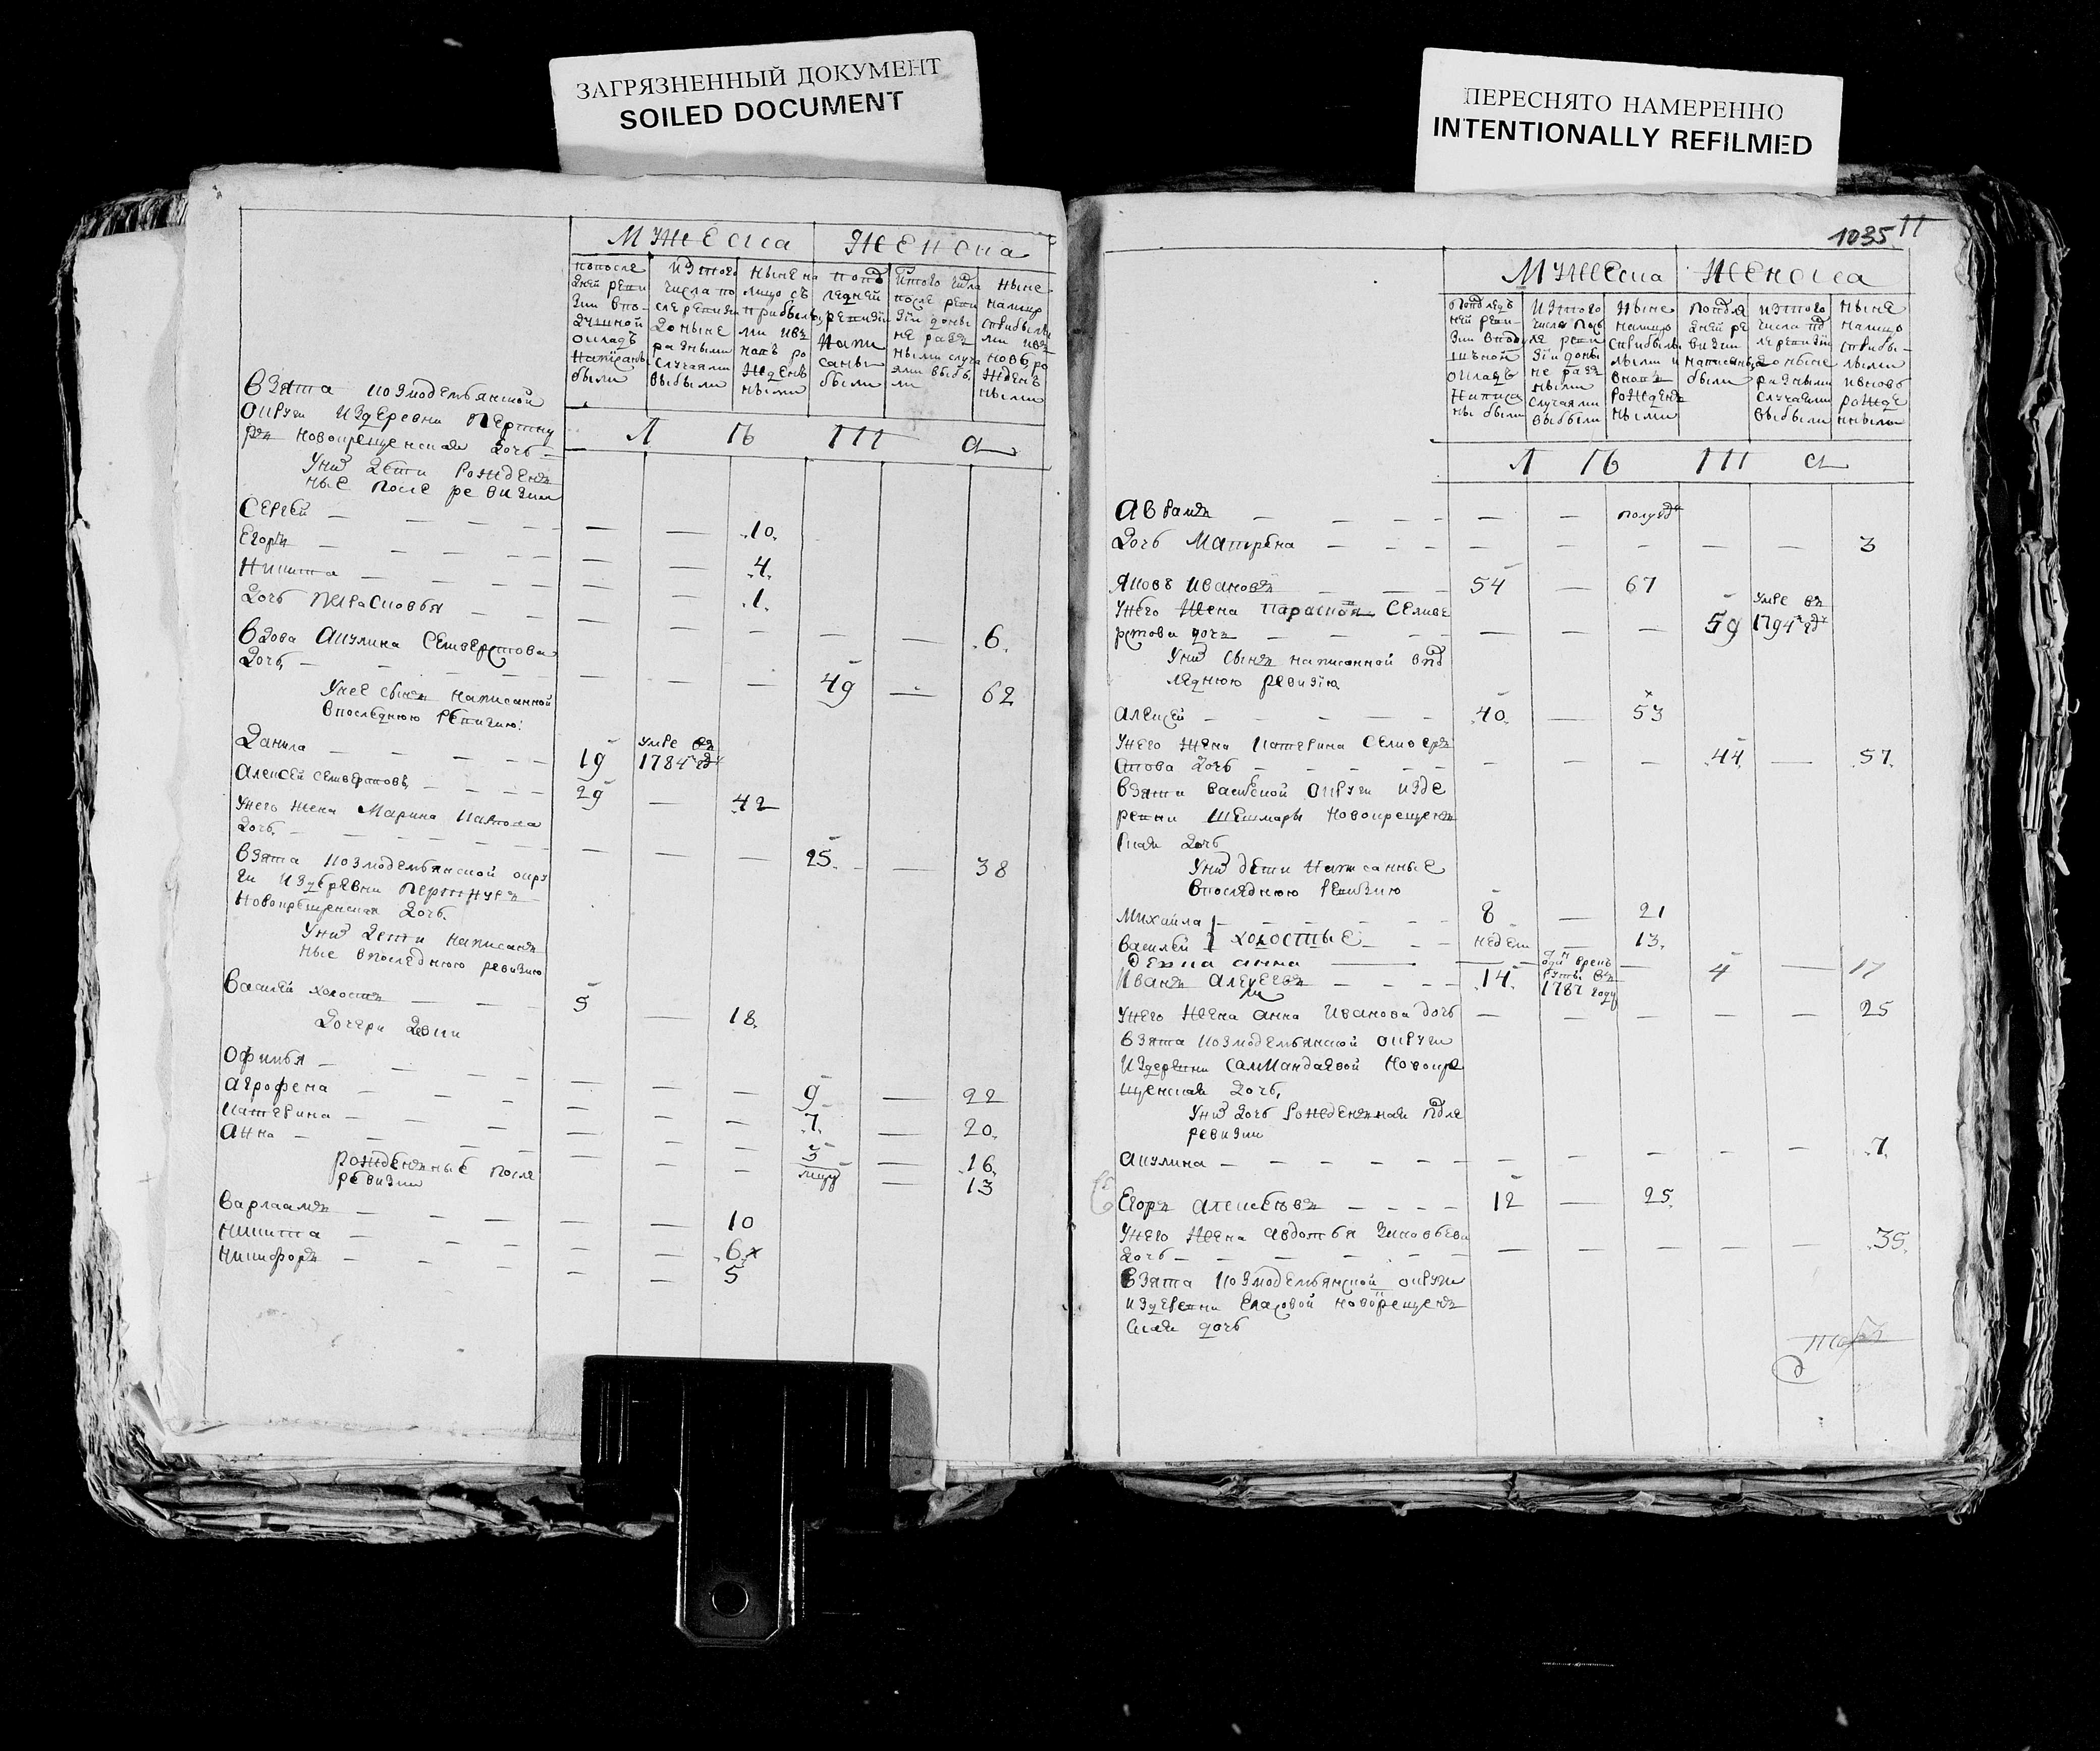 ЗАГРЯЗНЕННЫЙ ДОКУМЕНТ
SOILED DOCUMENT
Мужеска Женска
попосле дней реви зии впо душной окладъ написаны были
изтого числа по сле ревизии доныне разными случаями выбыли
ныне на лицо съ прибылы ми ивъ новъ ро жденъ ными
попо ледней ревизии напи саны были
истого числа после реви зии доны не разъ ными случа ями выбы ли
ныне налицо сприбылы ми ивъ новъ ро жденъ ными
Л П III а
взята козмодемьянской
округи издеревни Пертну
ръ новокрещенская дочь
униx дети рожденъ
ные после ревизии
Сергей — — 10.
Егоръ — — 4.
Никита — — 1.
дочь Парасковья — — — — — 6.
вдова Акулина Селиверстова
дочь — — — 49 — 62
унее сынъ написанной
впоследнюю ревизию:
Данила 19 умре въ 1784 году
Алексей Селиверстовъ 29 — 42
унего жена Марина Карпова
дочь — — — 25. — 38
взята козмодемьянской окру
ги издеревни Пертнуръ
новокрещенская дочь.
униx дети написанъ
ные впоследнюю ревизию
Василей холостъ 5 — 18.
дочери девки
Офимья — — — 9 — 22
Агрофена — — — 7. — 20.
Катерина — — — 3 — 16.
Анна — — — — 13
рожденъные после
ревизии
Варлаамъ — — 10
Никита — — 6 x
Никифоръ — — 5
ПЕРЕСНЯТО НАМЕРЕННО
INTENTIONALLY REFILMED
1035 11
Мужеска Женска
попослед ней реви зии вподу шной окладъ написа ны были
изтого числа посл ле реви зии доны не разъ ными случаями выбыли
ныне налицо сприбылы ми и вновъ рожденъ ными
попосле дней ре визии написаны были
изтого числа посл ле ревизии доныне разными случаями выбыли
ныне налицо сприбы лыми ивновь рожде нными
Л П III а
Авраамъ — — полугода
дочь Матрена — — — — — 3
Яковъ Ивановъ 54 — 67
унего жена Параскова Селиве
рстова дочь — — — 59 умре въ 1794 году
униx сынъ написанной впос
леднюю ревизию
Алексей 40. — 53
унего жена Катерина Селивер
стова дочь — — — 44. — 57.
взята Васильской округи изде
ревни Шешмары новокрещенъ
ская дочь
униx дети написанные
впоследнюю ревизию
Михайла 8 — 21
Василей } холостые недели — 13.
девка Анна — — — 4 — 17
Иванъ Алексеевъ 14. вънъ рекруты въ 1787 году
унего жена Анна Иванова дочь — — — — — 25
взята козмодемьянской округи
издеревни Самкандаевой новокре
щенская дочь,
униx дочь рожденъная после
ревизии
Акулина — — — — — 7.
Егоръ Алексеевъ 12 — 25.
унего жена Авдотья Зиновьева
дочь — — — — — 35.
взята козмодемьянской округи
издеревни Еласовой новокрещенъ
ская дочь